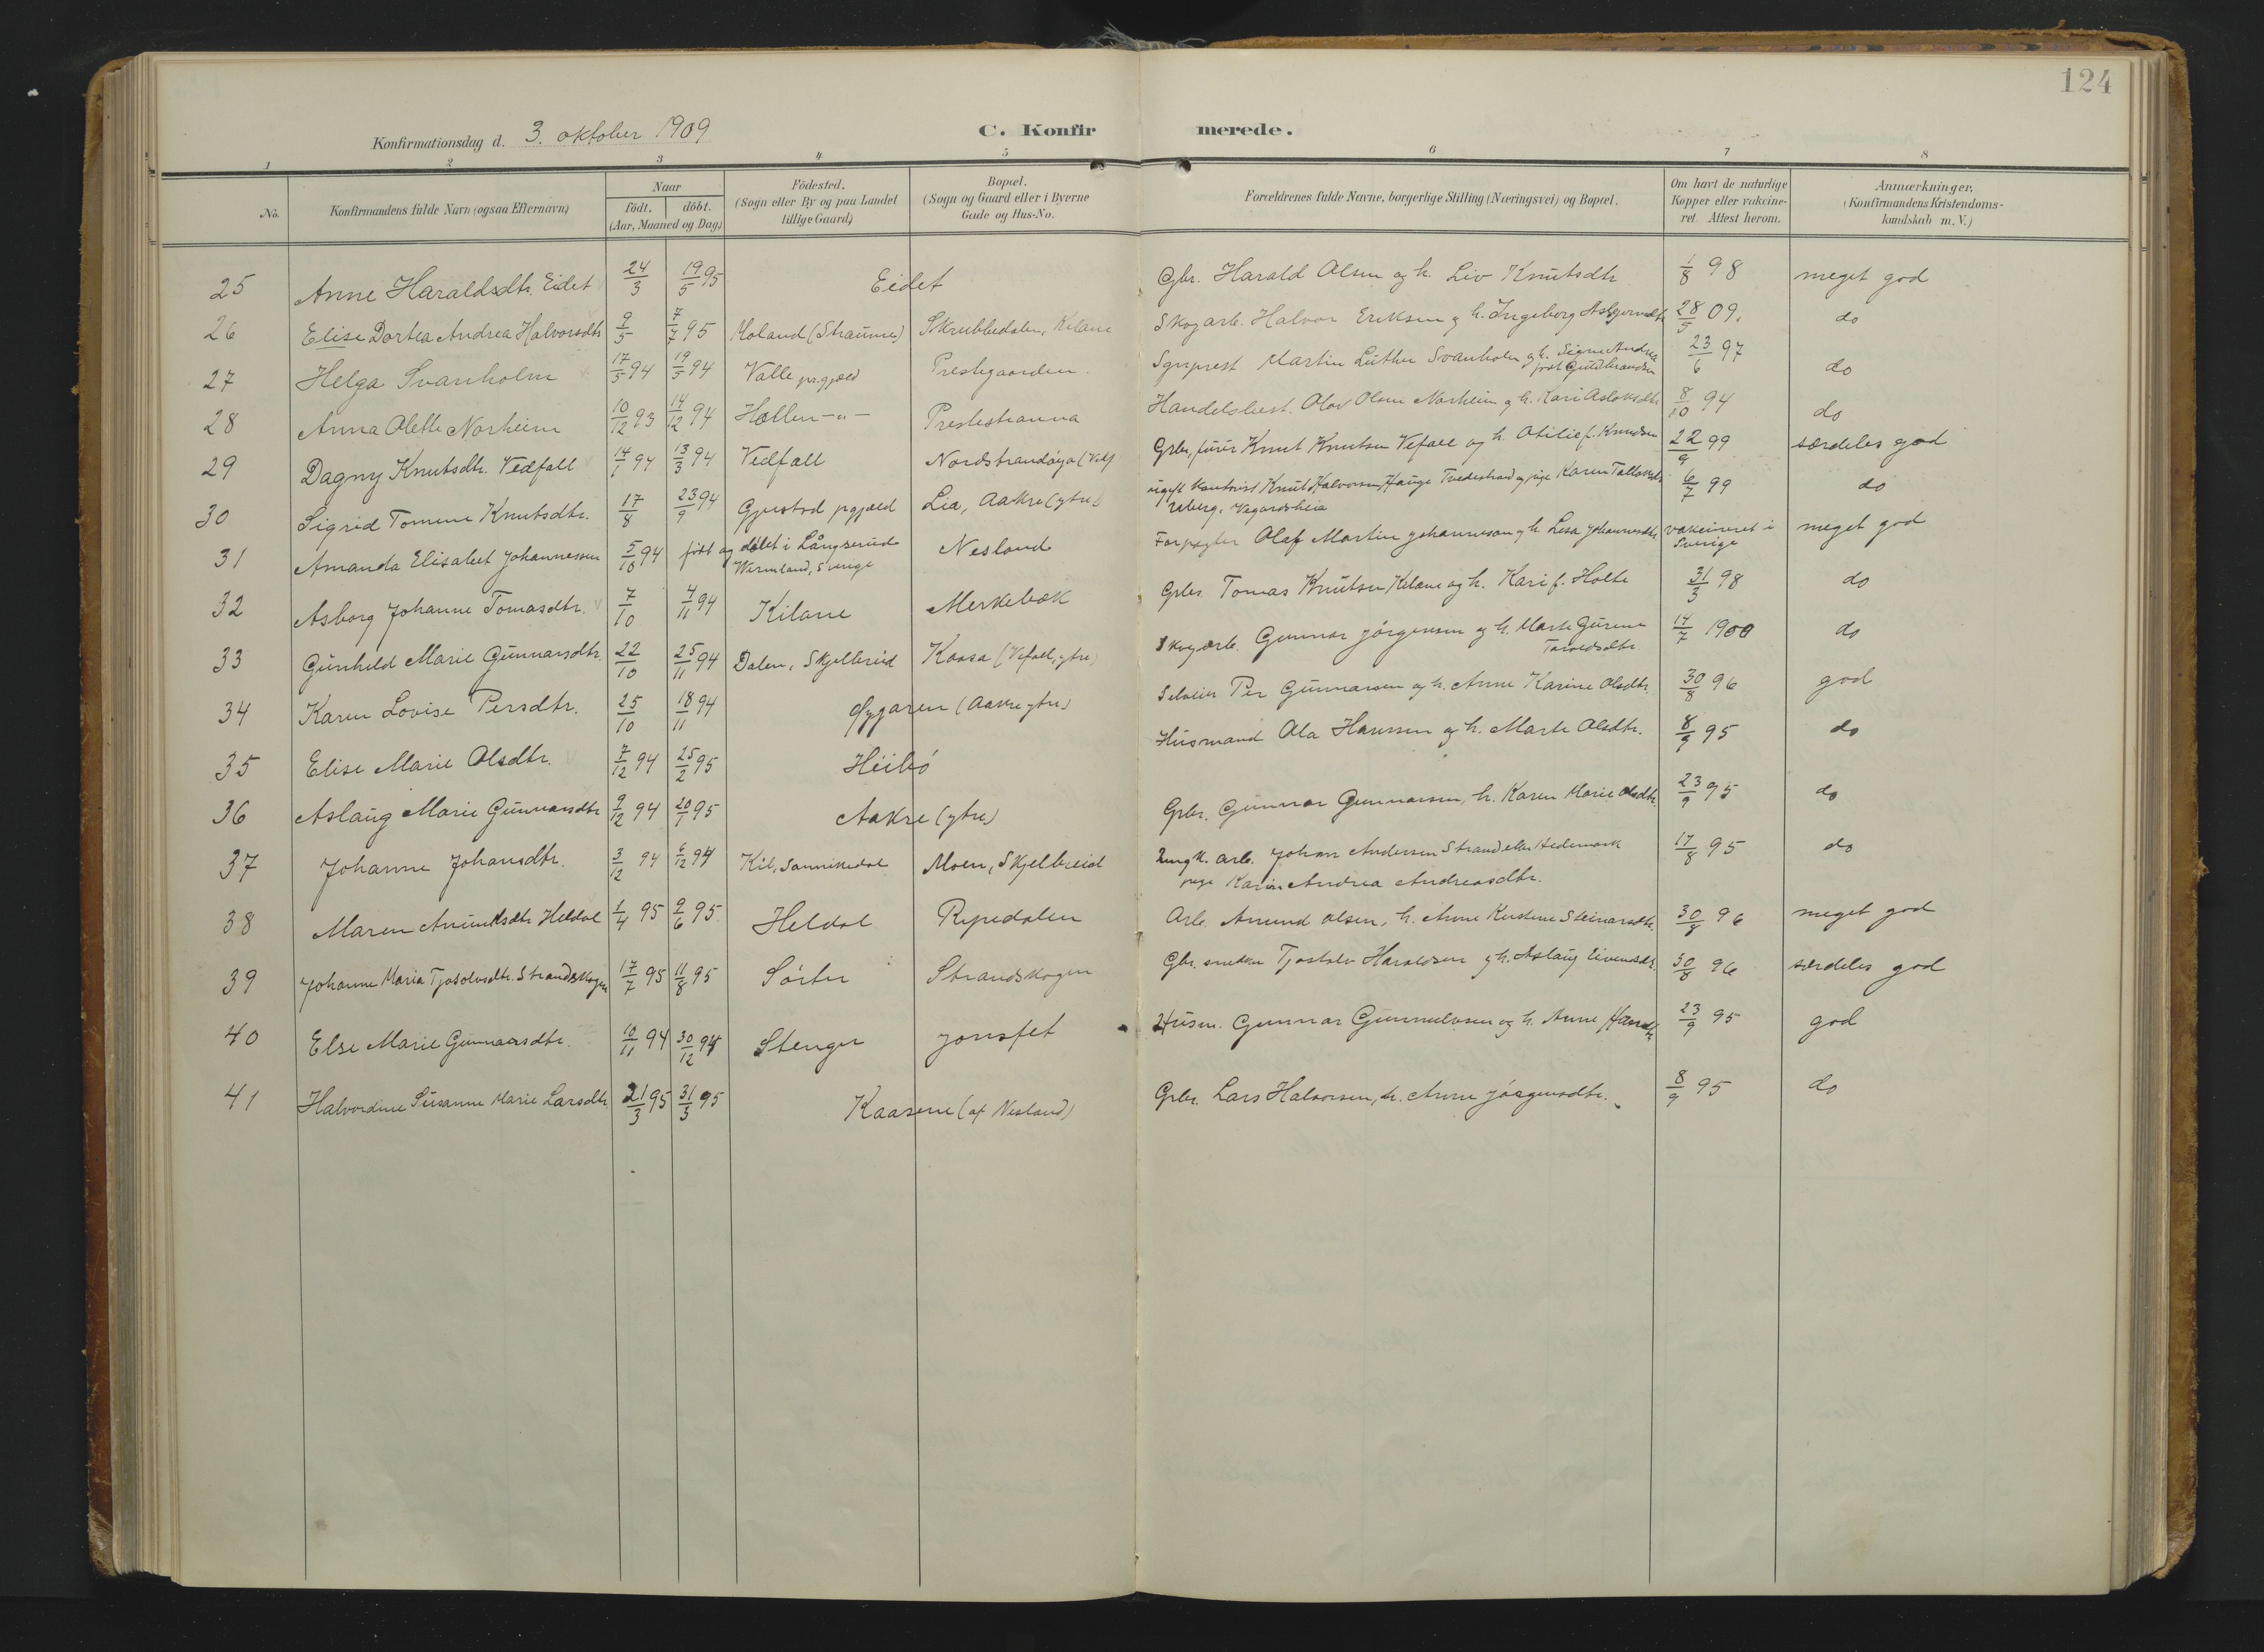 124
Konfirmationsdag d. 3. oktober 1909
C. Konfirmerede.
1 2 3 4 5 6 7 8
No.
Konfirmandens fulde Navn (ogsaa Efternavn)
Naar
födt. döbt.
(Aar, Maaned og Dag)
Födested.
(Sogn eller By og paa Landet
tillige Gaard)
Bopæl.
(Sogn og Gaard eller i Byerne
Gade og Hus-No.
Forældrenes fulde Navne, borgerlige Stilling (Næringsvei) og Bopæl.
Om havt de naturlige
Kopper eller vakcine-
ret. Attest herom.
Anmærkninger,
(Konfirmandens Kristendoms-
kundskab m. V.)
25 Anne Haraldsdtr. Eidet 24/3 19/5 95 Eidet Gbr. Harald Olsen og h. Liv Knutsdtr 1/8 98 meget god
26 Elise Dortea Andrea Halvorsdtr 9/5 7/7 95 Moland (Straume) Skrubbedalen, Kilane Skogarb. Halvor Eriksen og h. Ingeborg 28/5 09. do
27 Helga Svanholm 17/5 94 19/5 94 Valle prgjæld Prestegaarden. Sgnprest Martin Luther Svanholm og h. Signe Andrea
født Guldbrandsen 23/6 97 do
28 Anna Olette Norheim 10/12 93 14/12 94 Hollen -"- Prestestranna Handelsbest. Olav Olsen Norheim og h. Kari Aslaksdtr 8/10 94 do
29 Dagny Knutsdtr. Vedfall 14/1 94 13/3 94 Vedfall Nordstrandöya Grbr, furer Knut Knutsen Vefall og h. Otilie f. Knudsen 22/9 99 særdeles god
30 Sigrid Tomine Knutsdtr. 17/8 23/9 94 Gjerstad prgjæld Lia, Aakre (ytre) ugift kontorist Knut Halvorsen Hauge Tvedestrand og pige Karen
6/7 99 do
31 Amanda Elisabet Johannessen 5/10 94 født og døbt i Långserud
Wermland, Sverige Nesland Forpagter Olaf Martin Johannesson og h. Lisa Johannesdtr vakcineret i
Sverige meget god
32 Asborg Johanne Tomasdtr. 7/10 4/11 94 Kilane Merkebæk Grbr. Tomas Knutsen Kilane og h. Kari f. Holte 31/3 98 do
33 Gunhild Marie Gunnarsdtr. 22/10 25/11 94 Dalen, Skjelbreid Kaasa (Vefall, ytre) Skogarb. Gunnar Jörgensen og h. Marte Gurine
14/7 1900 do
34 Karen Lovise Persdtr. 25/10 18/11 94 Øygaren (Aakre ytre) Selveier Per Gunnarsen og h. Anne Karine Olsdtr. 30/8 96 god
35 Elise Marie Olsdtr. 7/12 94 25/2 95 Heibö Husmand Ola Hanssen og h. Marte Olsdtr. 8/9 95 do
36 Aslaug Marie Gunnarsdtr 9/12 94 20/1 95 Aakre (ytre) Grbr. Gunnar Gunnarsen, h. Karen Marie Olsdtr. 23/9 95 do
37 Johanne Johansdtr. 3/12 94 6/12 94 Kil, Sannikedal Moen, Skjelbreid Ungk. arb. Johan Andersen Strand eller Hedemark
pige Karen Andrea Andreasdtr. 17/8 95 do
38 Maren Amundsdtr Heldal 1/4 95 9/6 95. Heldal Rypedalen Arb. Amund Olsen, h. Anne Kirstine Steinarsdtr. 30/8 96 meget god
39 Johanne Maria Tjostolvsdtr. Strandskogen 17/7 95 11/8 95 Sörbø Strandskogen Gbr. smeden Tjostolv Haraldsen og h. Aslaug Eivindsdtr. 30/8 96 særdeles god
40 Else Marie Gunnarsdtr. 10/11 94 30/12 94 Stenger Jonsfet Husm. Gunnar Gunnulvsen og h. Anne Hansdtr 23/9 95 god
41 Halvordine Susanne Marie Larsdtr 21/3 95 31/3 95 Kaasene (af Nesland) Grbr. Lars Halvorsen, h. Anne Jörgensdtr. 8/9 95 do